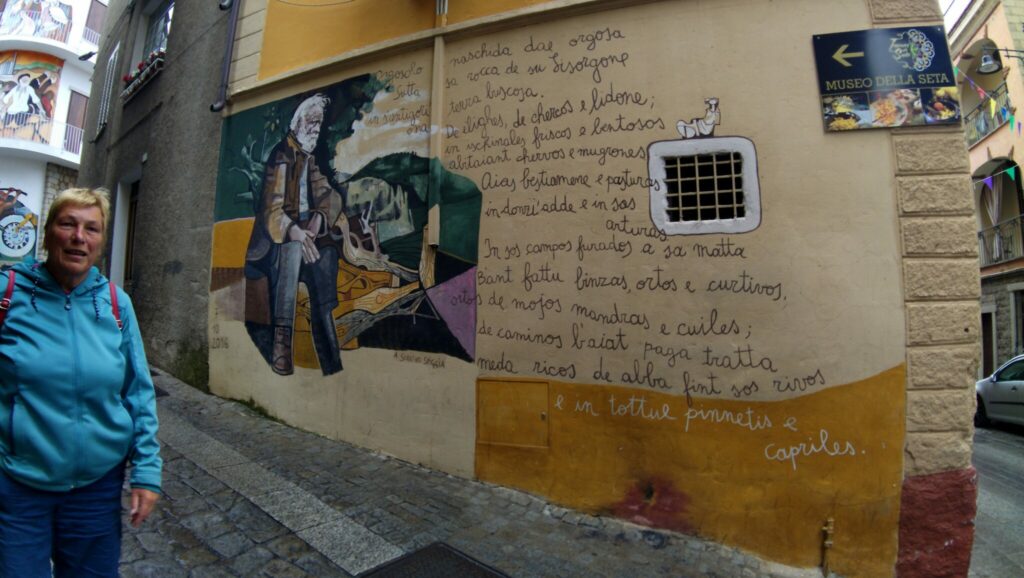 naschida dae orgosa
sa rocca de su Lisorgone
terra buscosa.
De elighes, de chercos e lidone;
in ischinales friscos e bentosos
abitaiant chervos e mugrones
Aias bestiamene e pasturas
in donzi'adde e in sas
arturas
In sos campos furados a sa matta
Biant fattu binzas, ortos e curtivos,
de mojos mandras e cuiles;
de caminos b'aiat paga tratta
meda ricos de abba fint sos rivos
e in tottue pinnetis e
capriles.
Orgosolo
2016
MUSEO DELLA SETA